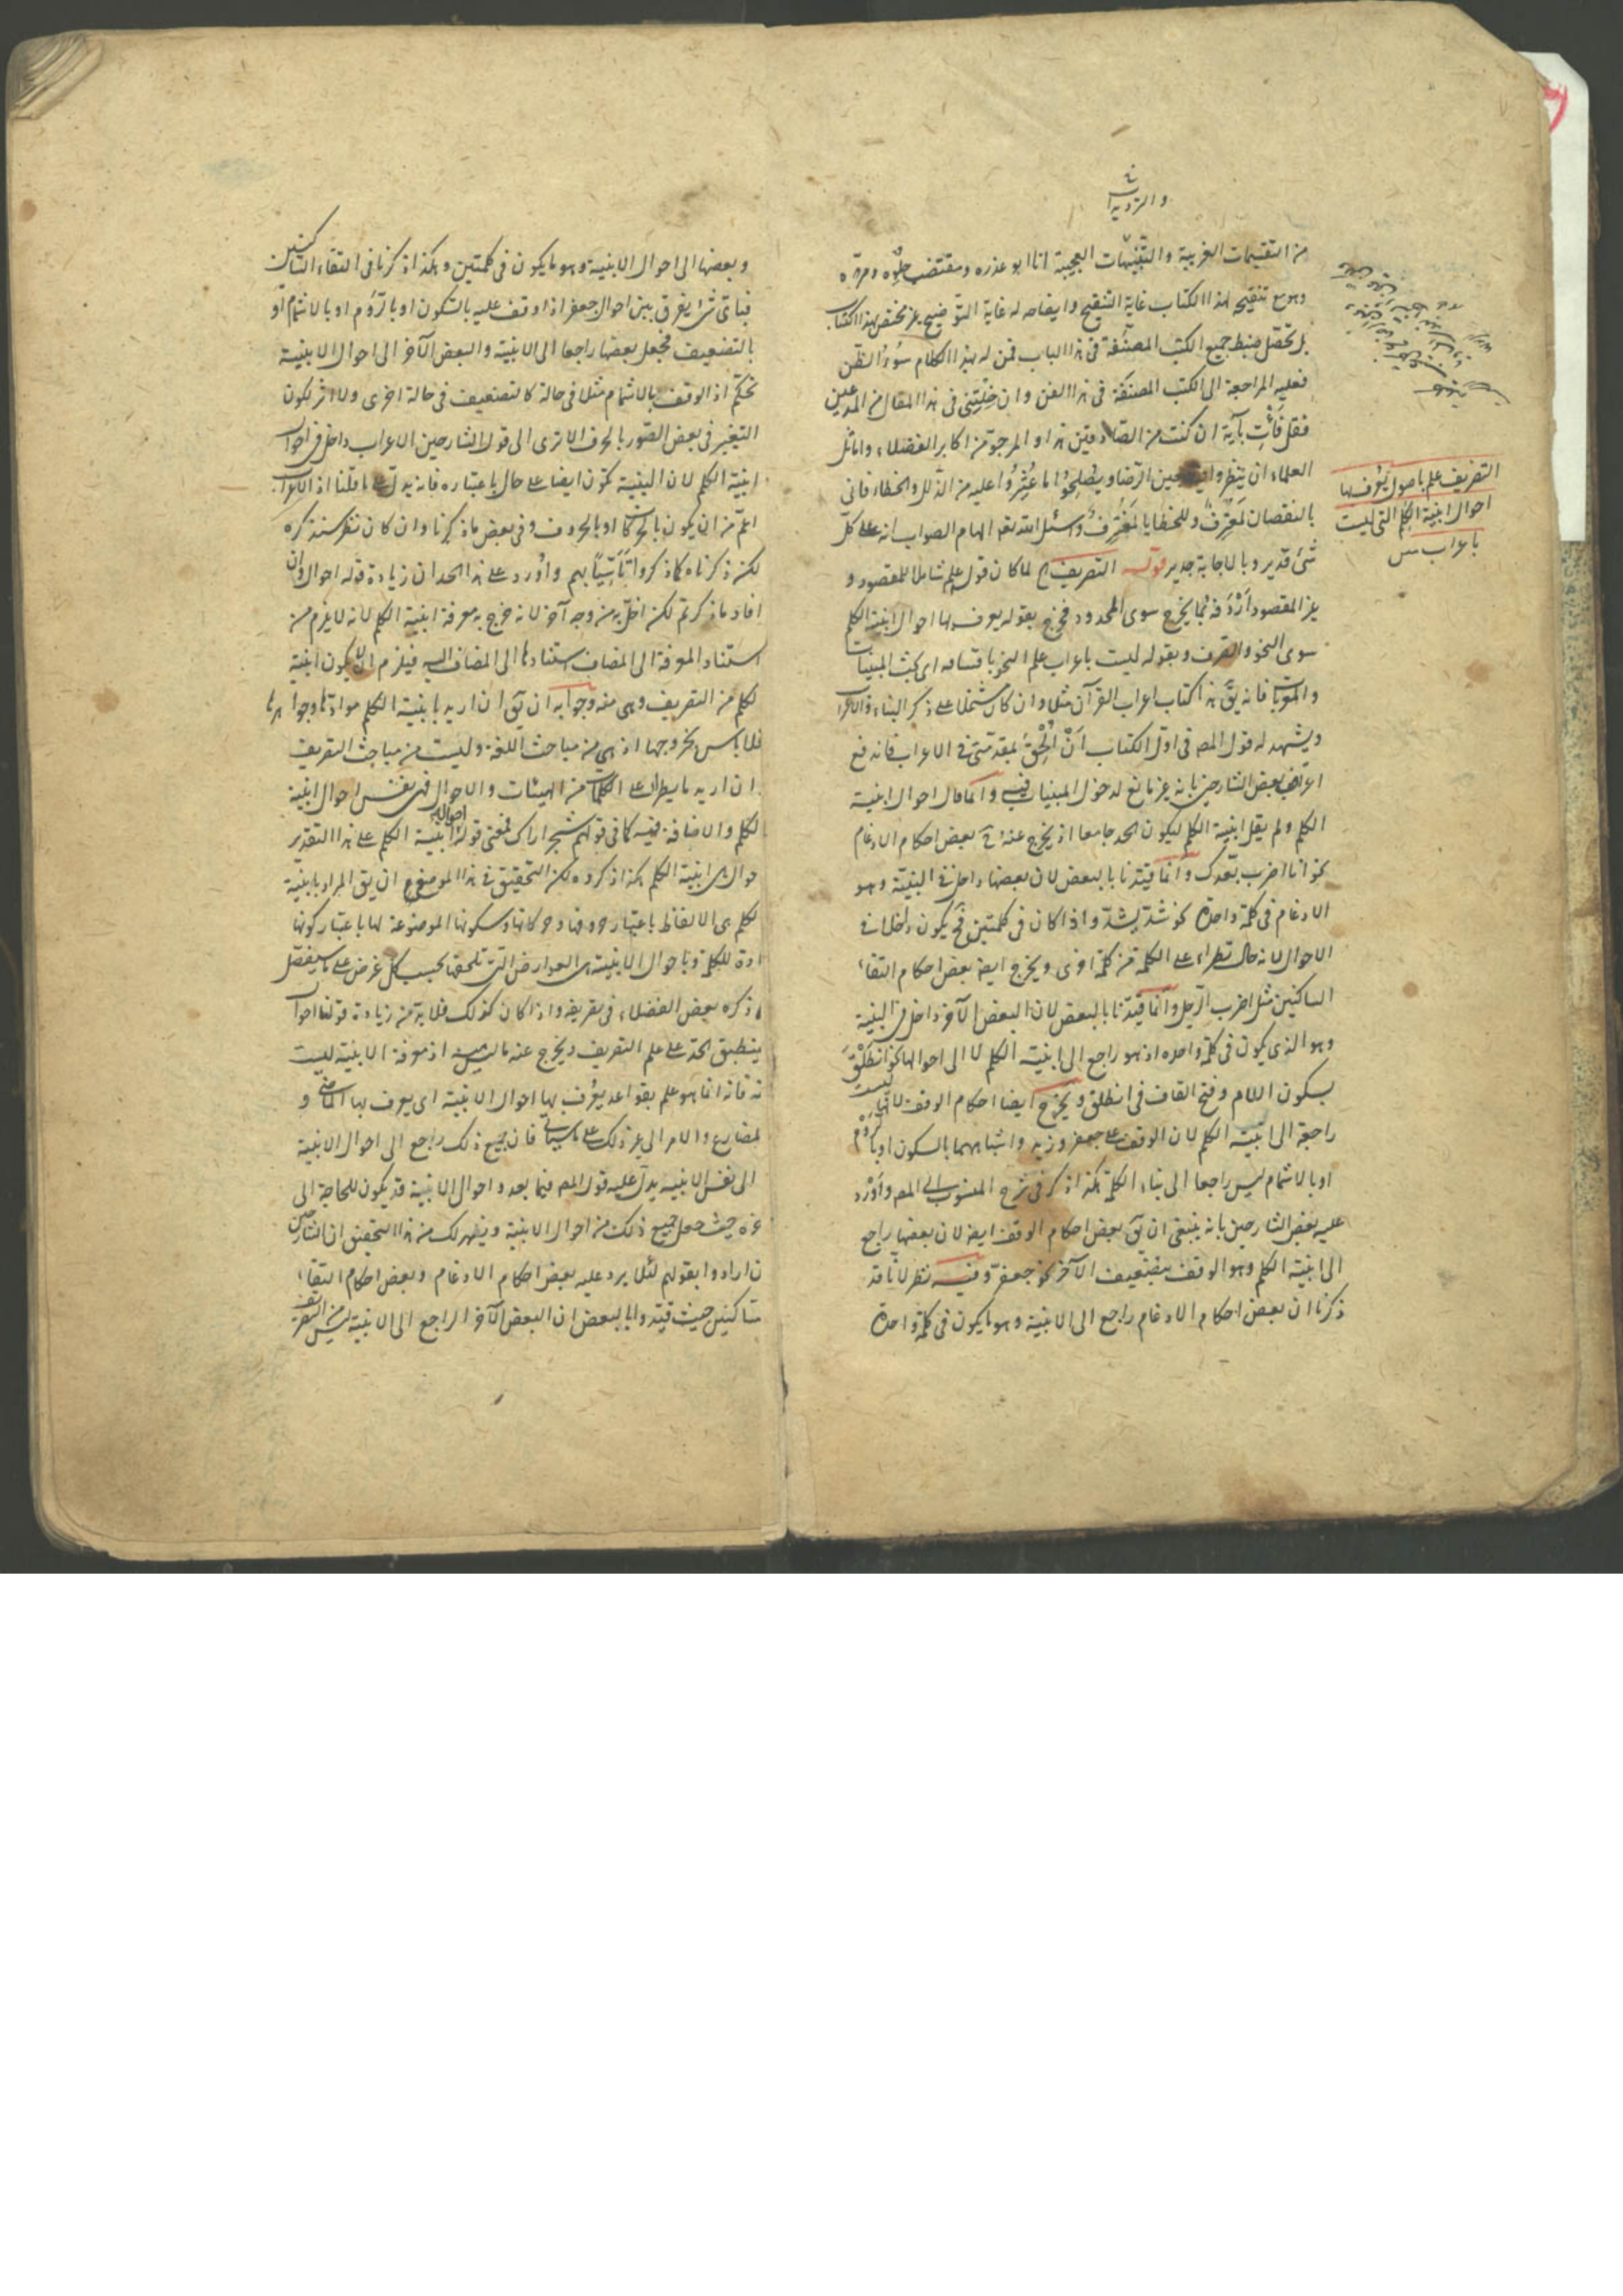 والترديدات
من التقسيمات الغريبة والتنبيهات العجيبة انا ابو عذره ومقتضب حلوه ومره
وهو مع تنقيح لهذا الكتاب غاية التنقيح وايضاحه له غاية التوضيح غير مختص بهذا الكتاب
بل تحصل ضبط جميع الكتب المصنفة فى هذا الباب فمن له بهذا الكلام سُوءُ الظن
فعليه المراجعة الى الكتب المصنفة فى هذا الفن وان خِلْتَنِى فى هذا المقال من المدعين
فقل فَأْتِ بآية ان كنت من الصادقين هذا والمرجو من اكابر الفضلاء واماثل
العلماء ان ينظروا فيه بعين الرضا ويُصْلِحُوا ما عُثِرُوا عليه من الزلل والخطاء فانى
بالنقصان لَمُعْتَرِفٌ وللخطايا لَمُقْتَرِفٌ واسئل الله تعم الهام الصواب انه على كل
شئ قدير وبالاجابة جدير قوله التصريف الخ لما كان قوله علم شاملا للمقصود و
غير المقصود اَرْدَفَه بما يخرج سوى المحدود فخرج بقوله يعرف بها احوال ابنية الكلم
سوى النحو والصرف وبقوله ليست باعراب علم النحو باقسامه اى بحث المبنيات
والمعربات فانه يقَ هذا كتاب اعراب القرآن مثلا وان كان مشتملا على ذكر البناء والاعراب
ويشهد له قول المصـ فى اول الكتاب اَنْ اُلْحِقَ بمقدمتى فى الاعراب فاندفع
اعتراض بعض الشارحين بانه غير مانع لدخول المبنيات فيه وانما قال احوال ابنية
الكلم ولم يقل ابنية الكلم ليكون الحد جامعا اذ يخرج عنه ح بعض احكام الادغام
نحو انا اضرب بعدك وانما قيدنا بالبعض لان بعضها داخل فى البنية وهو
الادغام فى كلمة واحدة نحو شدّ يشدّ واذا كان فى كلمتين فح يكون داخلا فى
الاحوال لانه حال تطراء على الكلمة من كلمة اخرى ويخرج ايضا بعض احكام التقاء
الساكنين مثل اضرب الرجل وانما قيدنا بالبعض لان البعض الآخر داخل فى البنية
وهو الذى يكون فى كلمة واحده اذ هو راجع الى ابنية الكلم لا الى احوالها نحو انطَلْقَ
بسكون اللام وفتح القاف فى انطلق ويخرج ايضا احكام الوقف لانها ليست
راجعة الى ابنية الكلم لان الوقف على جعفر وزيد واشباههما بالسكون او بالرَّوْمِ
او بالاشمام ليس راجعا الى بناء الكلمة هكذا ذكر فى شرح المنسوب الى المصـ واُوْرد
عليه بعض الشارحين بانه ينبغى ان يقَ بعض احكام الوقف ايضا لان بعضها راجع
الى ابنية الكلم وهو الوقف بتضعيف الآخر نحو جعفرّ وفيه نظر لانا قد
ذكرنا ان بعض احكام الادغام راجع الى الابنية وهو ما يكون فى كلمة واحدة
التصريف علم باصول يُعْرَف بها
احوال ابنية الكلم التى ليست
باعراب
وبعضها الى احوال الابنية وهو ما يكون فى كلمتين وهكذا ذكرنا فى التقاء الساكنين
فباى شئ يفرق بين احوال جعفر اذا وقف عليه بالسكون او بالرَّوْم او بالاشمام او
بالتضعيف فجعل بعضها راجعا الى الابنية والبعض الآخر الى احوال الابنية
تحكّم اذ الوقف بالاشمام مثلا فى حالة كالتضعيف فى حالة اخرى ولا اثر لكون
التغيير فى بعض الصور بالحرف الا ترى الى قول الشارحين الاعراب داخل فى احوال
ابنية الكلم لان البنية تكون ايضا على حال باعتباره فانه يدل على ما قلنا اذ الاعراب
اعمّ من ان يكون بالحركات او بالحروف وفى بعض ما ذكرنا وان كان نظر سنذكره
لكن ذكرناه كما ذكروا تَأَسِّيًا بهم واُورد على هذا الحد ان زيادة قوله احوال وان
افاد ما ذكرتم لكن اخلّ به من وجه آخر لانه خرج به معرفة ابنية الكلم لانه لا يلزم من
استناد المعرفة الى المضاف استنادها الى المضاف اليه فيلزم ان لا يكون ابنية
لكلم من التصريف وهى منه وجوابه ان يقَ ان اريد بابنية الكلم موادها وجواهرها
فلا باس بخروجها اذ هى من مباحث اللغة وليست من مباحث التصريف
ان اريد ما يطراء على الكلمات من الهيئات والاحوال فهى نفس احوال ابنية
لكلم والاضافة فيه كما فى قولهم شجر اراك فمعنى قوله احوال ابنية الكلم على هذا التقدير
حوال هى ابنية الكلم هكذا ذكروه لكن التحقيق فى هذا الموضع ان يقَ المراد بابنية
لكلم هى الالفاظ باعتبار حروفها وحركاتها وسكونها الموضوعة لها باعتبار كونها
ادة للكلمة وباحوال الابنية هى العوارض التى تلحقها بحسب كل غرض على ما سيفصل
ا ذكره بعض الفضلاء فى تعريفه واذا كان كذلك فلا بد من زيادة قولنا احوال
ينطبق الحد على علم التصريف ويخرج عنه ما ليس منه اذ معرفة الابنية ليست
نه فانه انما هو علم بقواعد يعرف بها احوال الابنية اى يعرف بها الماضى و
لمضارع والامر الى غير ذلك على ما سياتى فان جميع ذلك راجع الى احوال الابنية
الى نفس الابنية يدل عليه قول المصـ فيما بعد واحوال الابنية قد يكون للحاجة الى
خره حيث جعل جميع ذلك من احوال الابنية ويظهر لك من هذا التحقيق ان الشارحين
ن ارادوا بقولهم لئلا يرد عليه بعض احكام الادغام وبعض احكام التقاء
ساكنين حيث قيدوا بالبعض ان البعض الآخر الراجع الى الابنية ليس من التصريف